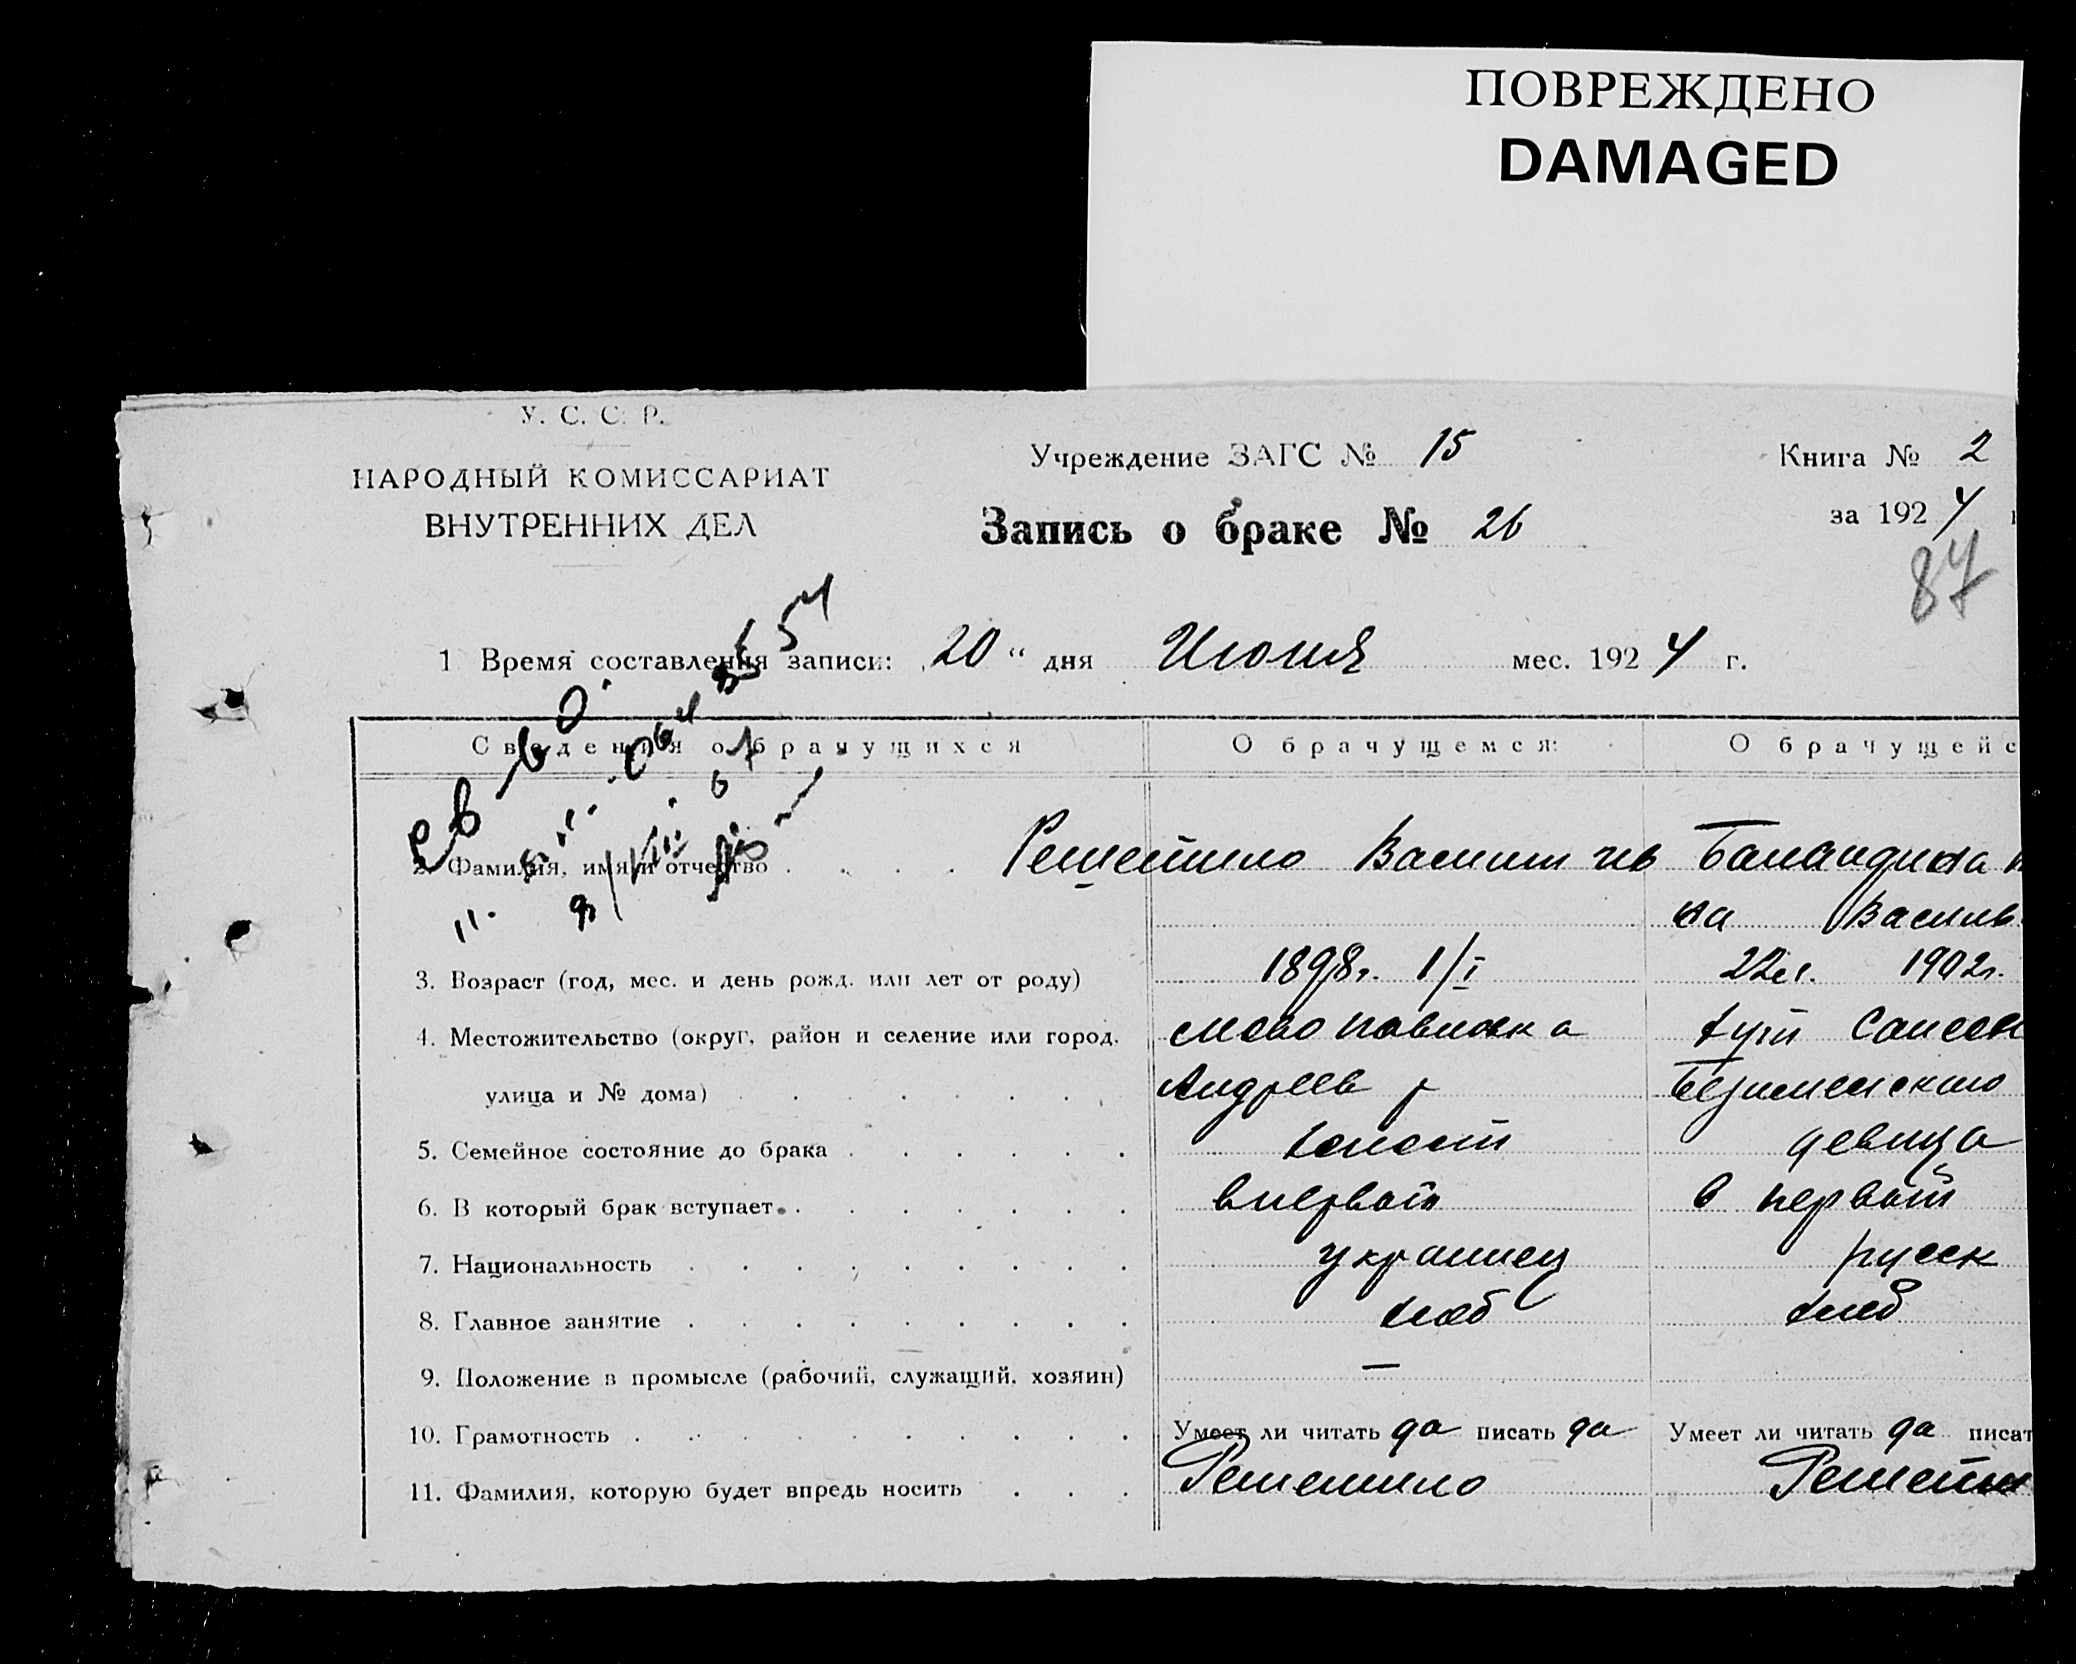 ПОВРЕЖДЕНО
DAMAGED
У. С. С. Р.
НАРОДНЫЙ КОМИССАРИАТ
ВНУТРЕННИХ ДЕЛ
Учреждение ЗАГС № 15
Книга № 2
Запись о браке № 26
за 1924
87
1 Время составления записи: 20 " дня Июня мес. 1924 г.
Сведения о брачущихся О брачущемся: О брачущейс
2. Фамилия, имя и отчество Решетило Василий Ив Баландина
ка Василь
3. Возраст (год, мес. и день рожд. или лет от роду) 1898г. 1/I 22л. 1902г.
4. Местожительство (округ, район и селение или город, Ново павловка хут
улица и № дома) Андреев р
5. Семейное состояние до брака холост девица
6. В который брак вступает в первый в первый
7. Национальность украинец русск
8. Главное занятие хлеб хлеб
9. Положение в промысле (рабочий, служащий, хозяин) —
10. Грамотность Умеет ли читать да писать да Умеет ли читать да писат
11. Фамилия, которую будет впредь носить Решетило Решетил